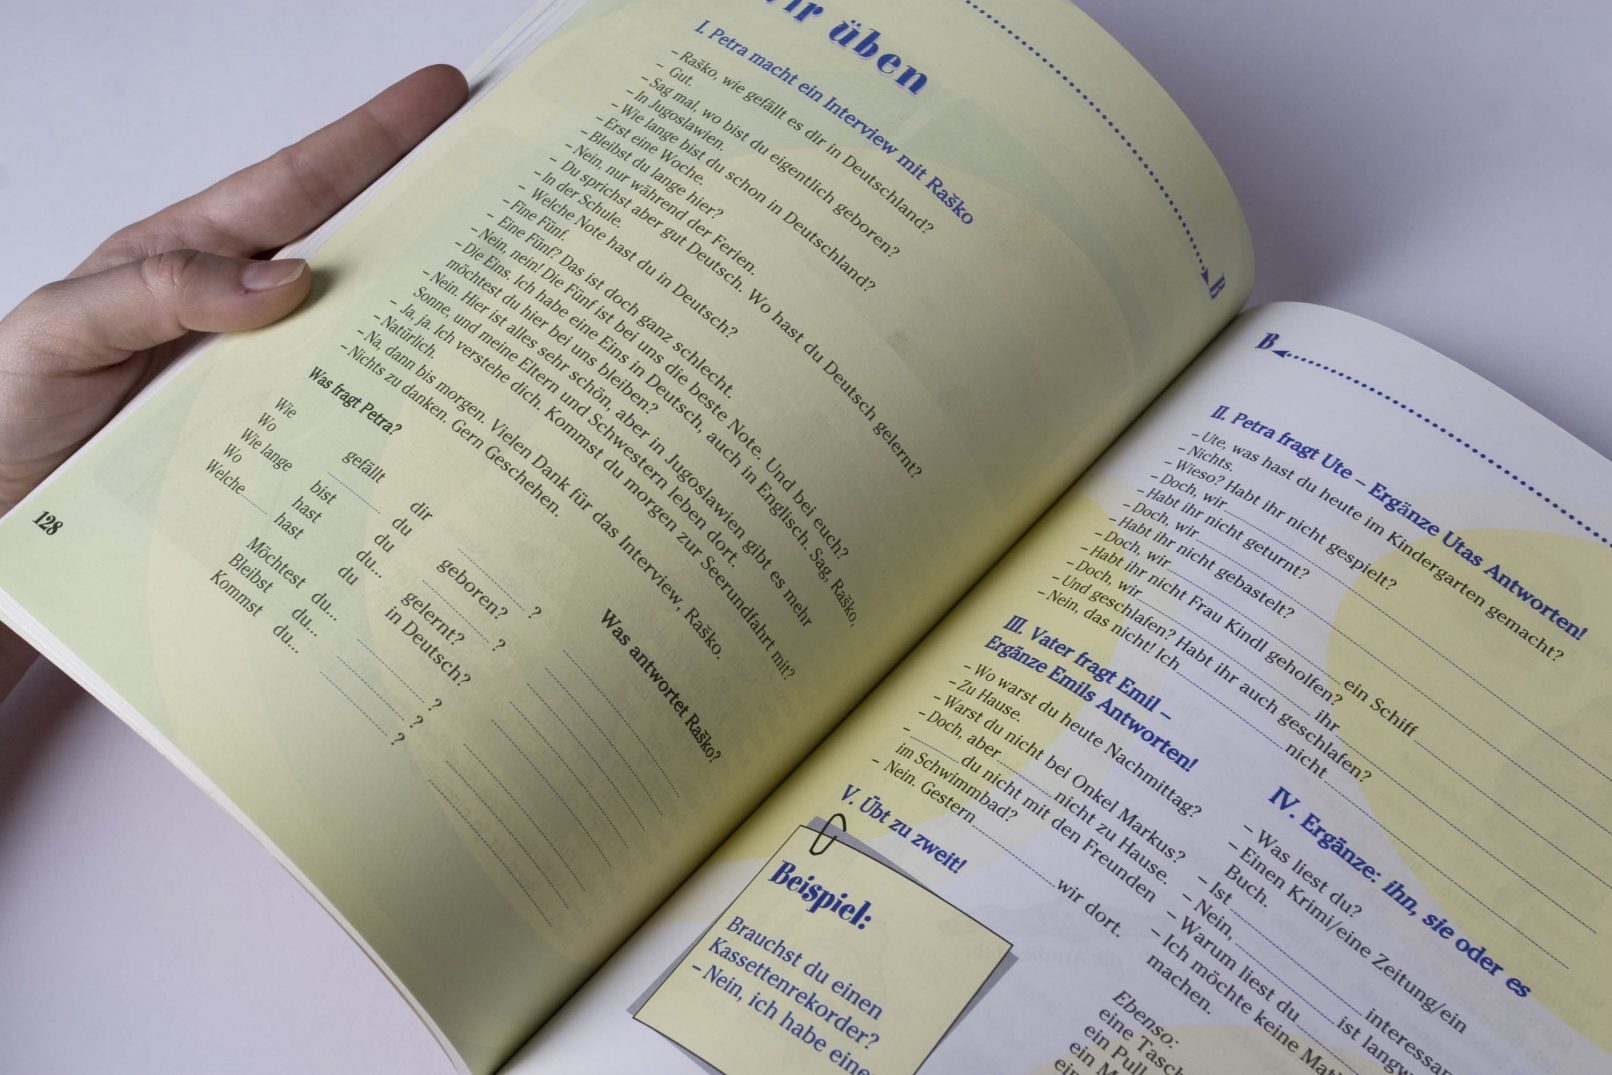 Wir üben
I. Petra macht ein Interview mit Raško
– Raško, wie gefällt es dir in Deutschland?
– Gut.
– Sag mal, wo bist du eigentlich geboren?
– In Jugoslawien.
– Wie lange bist du schon in Deutschland?
– Erst eine Woche.
– Bleibst du lange hier?
– Nein, nur während der Ferien.
– Du sprichst aber gut Deutsch. Wo hast du Deutsch gelernt?
– In der Schule.
– Welche Note hast du in Deutsch?
– Fine Fünf.
– Eine Fünf? Das ist doch ganz schlecht.
– Nein, nein! Die Fünf ist bei uns die beste Note. Und bei euch?
– Die Eins. Ich habe eine Eins in Deutsch, auch in Englisch. Sag, Raško,
möchtest du hier bei uns bleiben?
– Nein. Hier ist alles sehr schön, aber in Jugoslawien gibt es mehr
Sonne, und meine Eltern und Schwestern leben dort.
– Ja, ja. Ich verstehe dich. Kommst du morgen zur Seerundfahrt mit?
– Natürlich.
– Na, dann bis morgen. Vielen Dank für das Interview, Raško.
– Nichts zu danken. Gern Geschehen.
Was fragt Petra? Was antwortet Raško?
Wie gefällt dir ?
Wo bist du geboren?
Wie lange hast du ?
Wo hast du... gelernt?
Welche hast du in Deutsch?
Möchtest du... ?
Bleibst du... ?
Kommst du... ?
128
B
B
II. Petra fragt Ute – Ergänze Utas Antworten!
– Ute, was hast du heute im Kindergarten gemacht?
– Nichts.
– Wieso? Habt ihr nicht gespielt?
– Doch, wir
– Habt ihr nicht geturnt?
– Doch, wir
– Habt ihr nicht gebastelt?
– Doch, wir ein Schiff
– Habt ihr nicht Frau Kindl geholfen?
– Doch, wir ihr
– Und geschlafen? Habt ihr auch geschlafen?
– Nein, das nicht! Ich nicht
III. Vater fragt Emil –
Ergänze Emils Antworten!
– Wo warst du heute Nachmittag?
– Zu Hause.
– Warst du nicht bei Onkel Markus?
– Doch, aber nicht zu Hause.
– du nicht mit den Freunden
im Schwimmbad?
– Nein. Gestern wir dort.
IV. Ergänze: ihn, sie oder es
– Was liest du?
– Einen Krimi/eine Zeitung/ein
Buch.
– Ist interessan
– Nein, ist langw
– Warum liest du
– Ich möchte keine Mat
machen.
Ebenso:
eine Tasc
ein Pull
ein M
V. Übt zu zweit!
Beispiel:
Brauchst du einen
Kassettenrekorder?
– Nein, ich habe eine